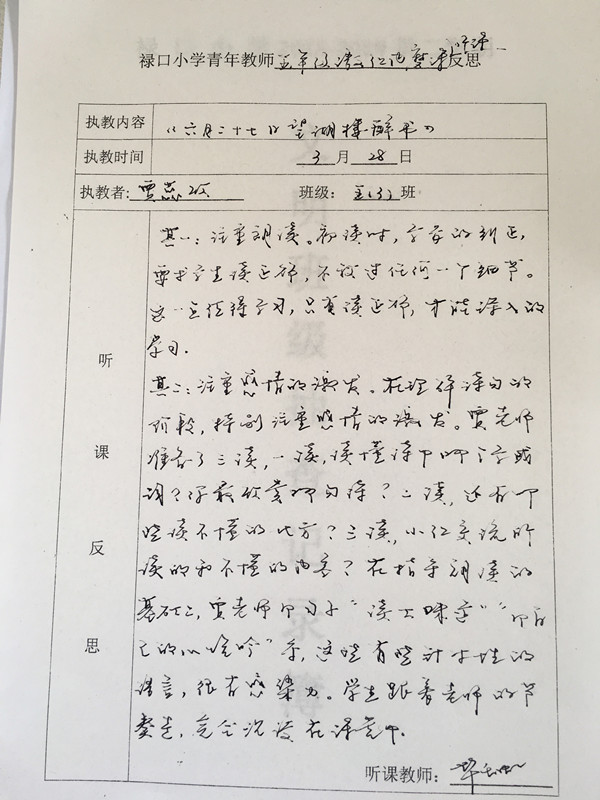 禄口小学青年教师五年级语文 反思
执教内容 《六月二十七日望湖楼醉书》
执教时间 3月28日
执教者:贾蕊 班级:五(3)班
听课反思
其一:注重朗读。初读时,字音的纠正,
要求学生读正确,不放过任何一个细节。
这一点值得学习,只有读正确,才能深入的
学习。
其二:注重感情的激发。在理解诗句的
阶段,特别注重感情的激发。贾老师
准备了三读,一读,读懂诗中哪个字或
词?你最欣赏哪句诗?二读,还有哪
些读不懂的地方?三读,小组交流所
读的和不懂的内容?在指导朗读的
基础上,贾老师 “读上味字”“用自
己的心吟”等,这些有些 的
语言,很有感染力。学生跟着老师的节
奏走,完全沉浸在课堂中。
听课教师: